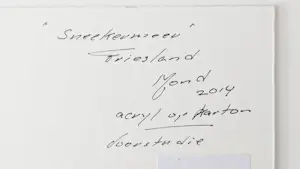 "Sneekermeer"
Friesland
Mond
2014
acryl op karton
voorstudie